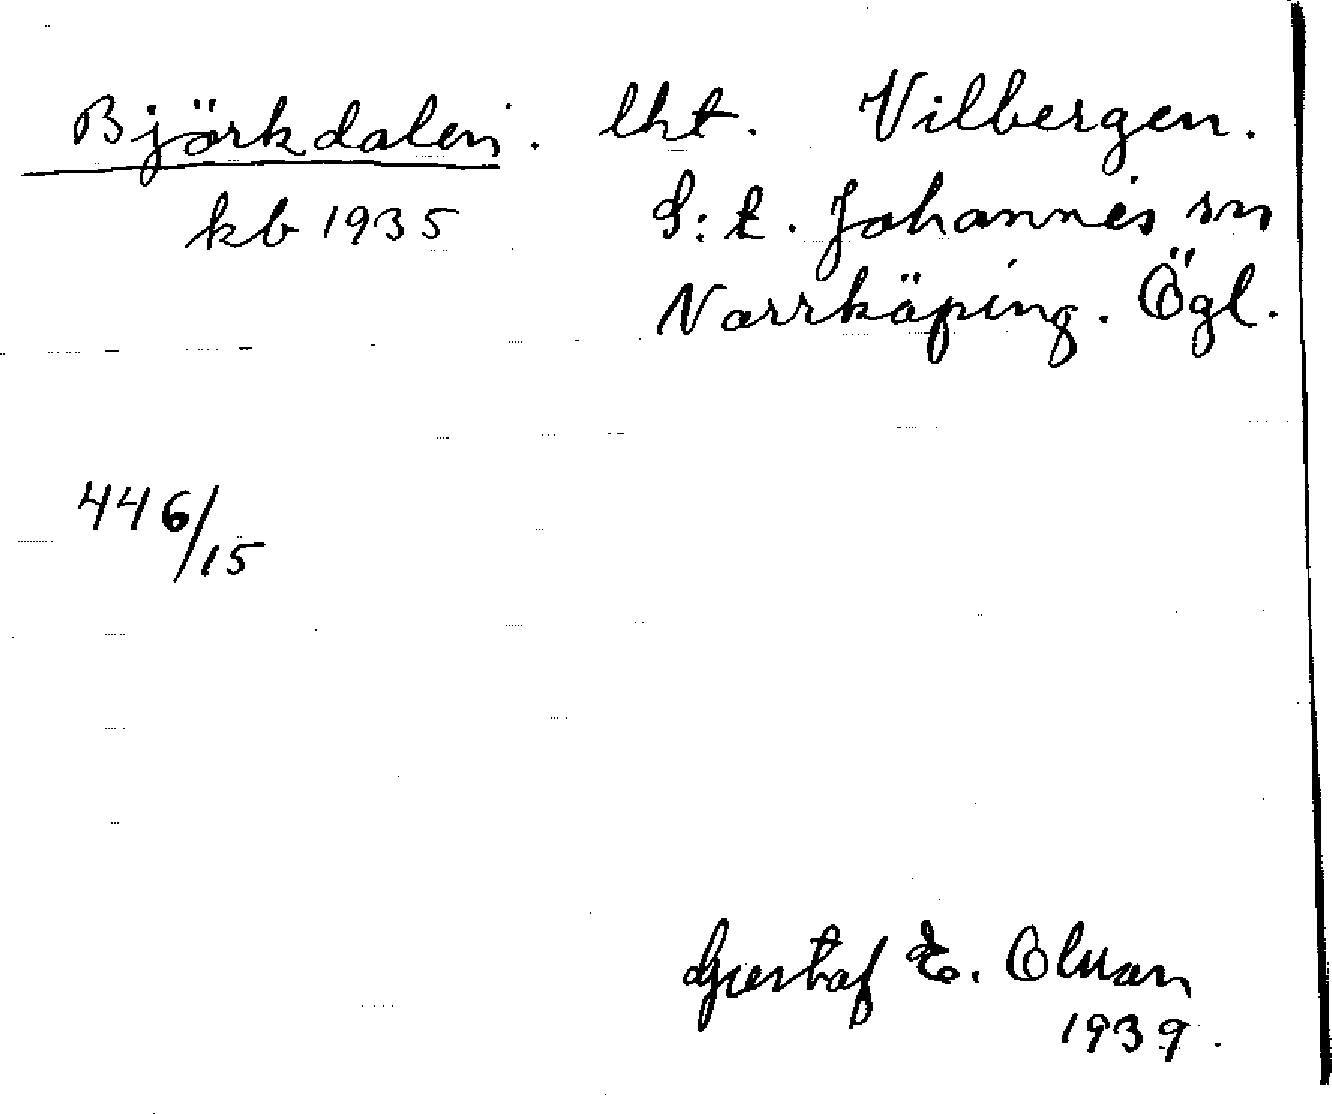 Björkdalen. lht. Vilbergen.
kb 1935 S:t. Johannes sn
Norrköping. Ögl.
446/15
Gustaf E. Olsson
1939.